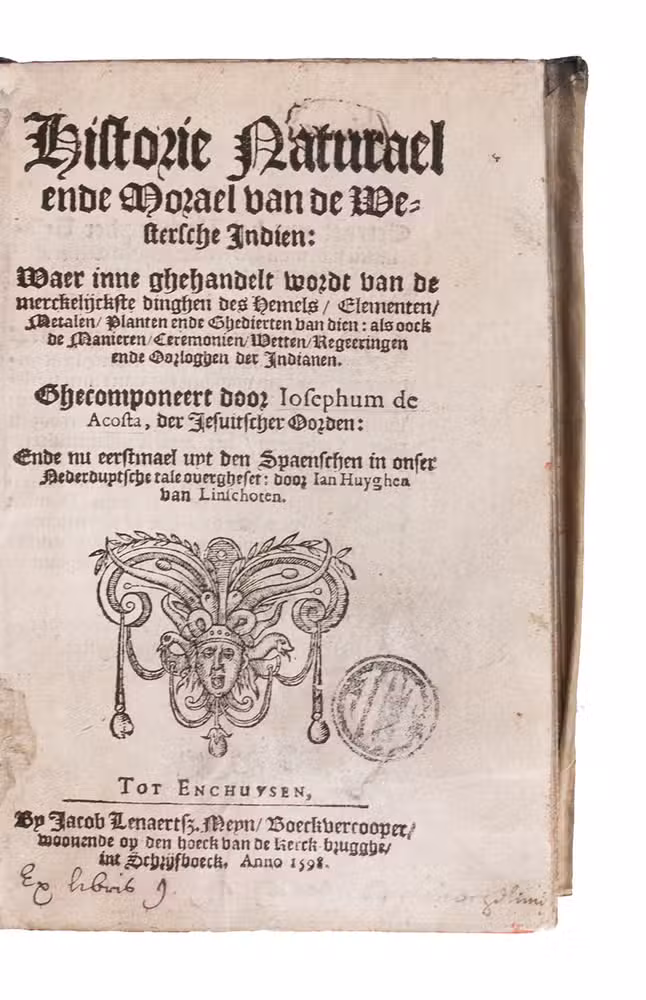 Historie Naturael
ende Morael van de We-
stersche Indien:
Waer inne ghehandelt wordt van de
merckelijckste dinghen des Hemels / Elementen/
Metalen/ Planten ende Ghedierten van dien: als oock
de Manieren/ Ceremonien/ Wetten/ Regeeringen
ende Oorloghen der Indianen.
Ghecomponeert door Iosephum de
Acosta, der Jesuitscher Oorden:
Ende nu eerstmael uyt den Spaenschen in onser
Nederduytsche tale overgheset: door Ian Huyghen
van Linschoten.
TOT ENCHUYSEN,
By Jacob Lenaertsz. Meyn/ Boeckvercooper/
woonende op den hoeck van de kerck-brugghe/
int Schrijfboeck, Anno 1598.
Ex libris